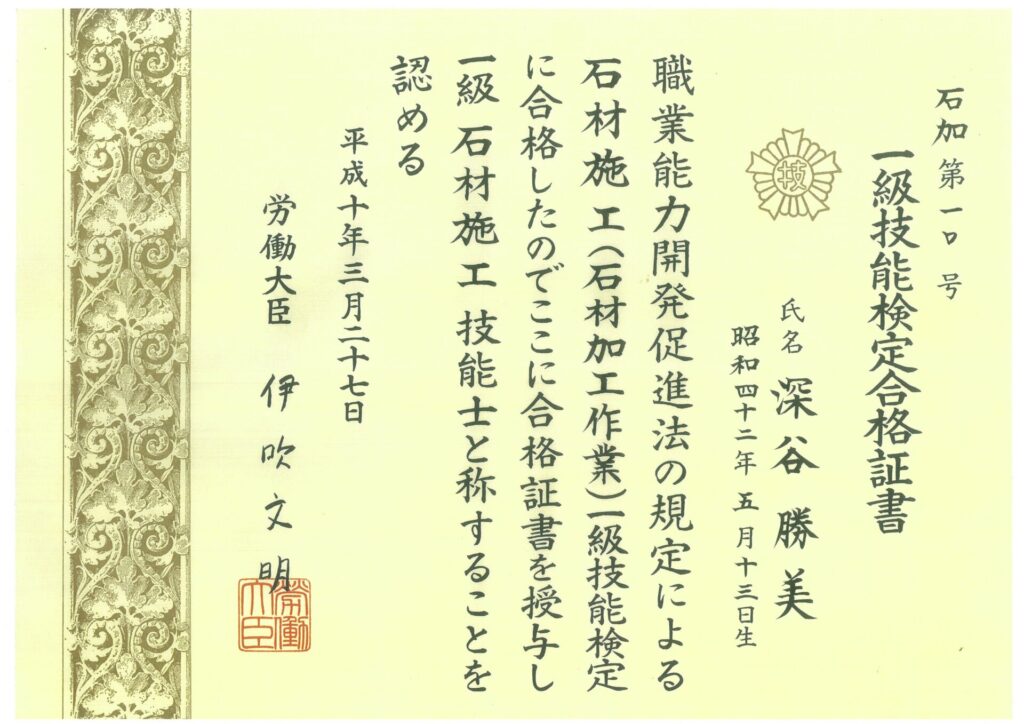 石加第一〇号
一級技能検定合格証書
技
氏名 深谷勝美
昭和四十二年五月十三日生
職業能力開発促進法の規定による
石材施工(石材加工作業)一級技能検定
に合格したのでここに合格証書を授与し
一級石材施工技能士と称することを
認める
平成十年三月二十七日
労働大臣 伊吹文明
労働大臣